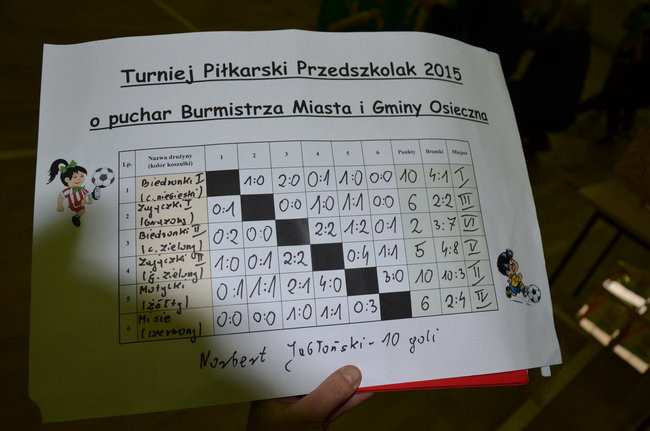 Turniej Piłkarski Przedszkolak 2015
o puchar Burmistrza Miasta i Gminy Osieczna
Lp. Nazwa drużyny (kolor koszulki) 1 2 3 4 5 6 Punkty Bramki Miejsce
1 Biedronki I 1:0 2:0 0:1 1:0 0:0 10 4:1 I
(c. niebieski)
2 Zajączki I 0:1 0:0 1:0 1:1 0:0 6 2:2 III
(brązowy)
3 Biedronki II 0:2 0:0 2:2 1:2 0:1 2 3:7 VI
(c. zielony)
4 Zajączki II 1:0 0:1 2:2 0:4 1:1 5 4:8 V
(j. zielony)
5 Motylki 0:1 1:1 2:1 4:0 3:0 10 10:3 II
(żółty)
6 Misie 0:0 0:0 1:0 1:1 0:3 6 2:4 IV
(czerwony)
Norbert Jabłoński - 10 goli